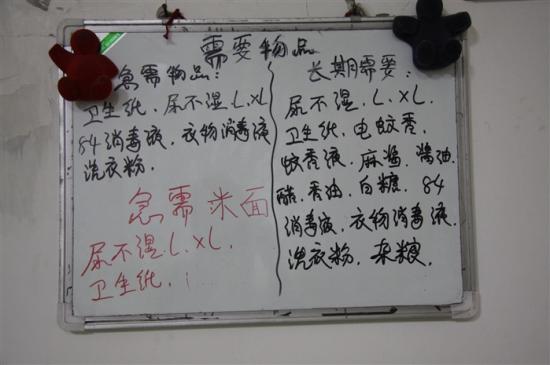 需要物品
急需物品：
卫生纸．尿不湿L．XL
84消毒液．衣物消毒液
洗衣粉．
急需米面
尿不湿．L．XL．
卫生纸．
长期需要：
尿不湿．L．XL．
卫生纸．电蚊香．
蚊香液．麻酱．酱油．
醋．香油．白糖．84
消毒液．衣物消毒液．
洗衣粉．杂粮．